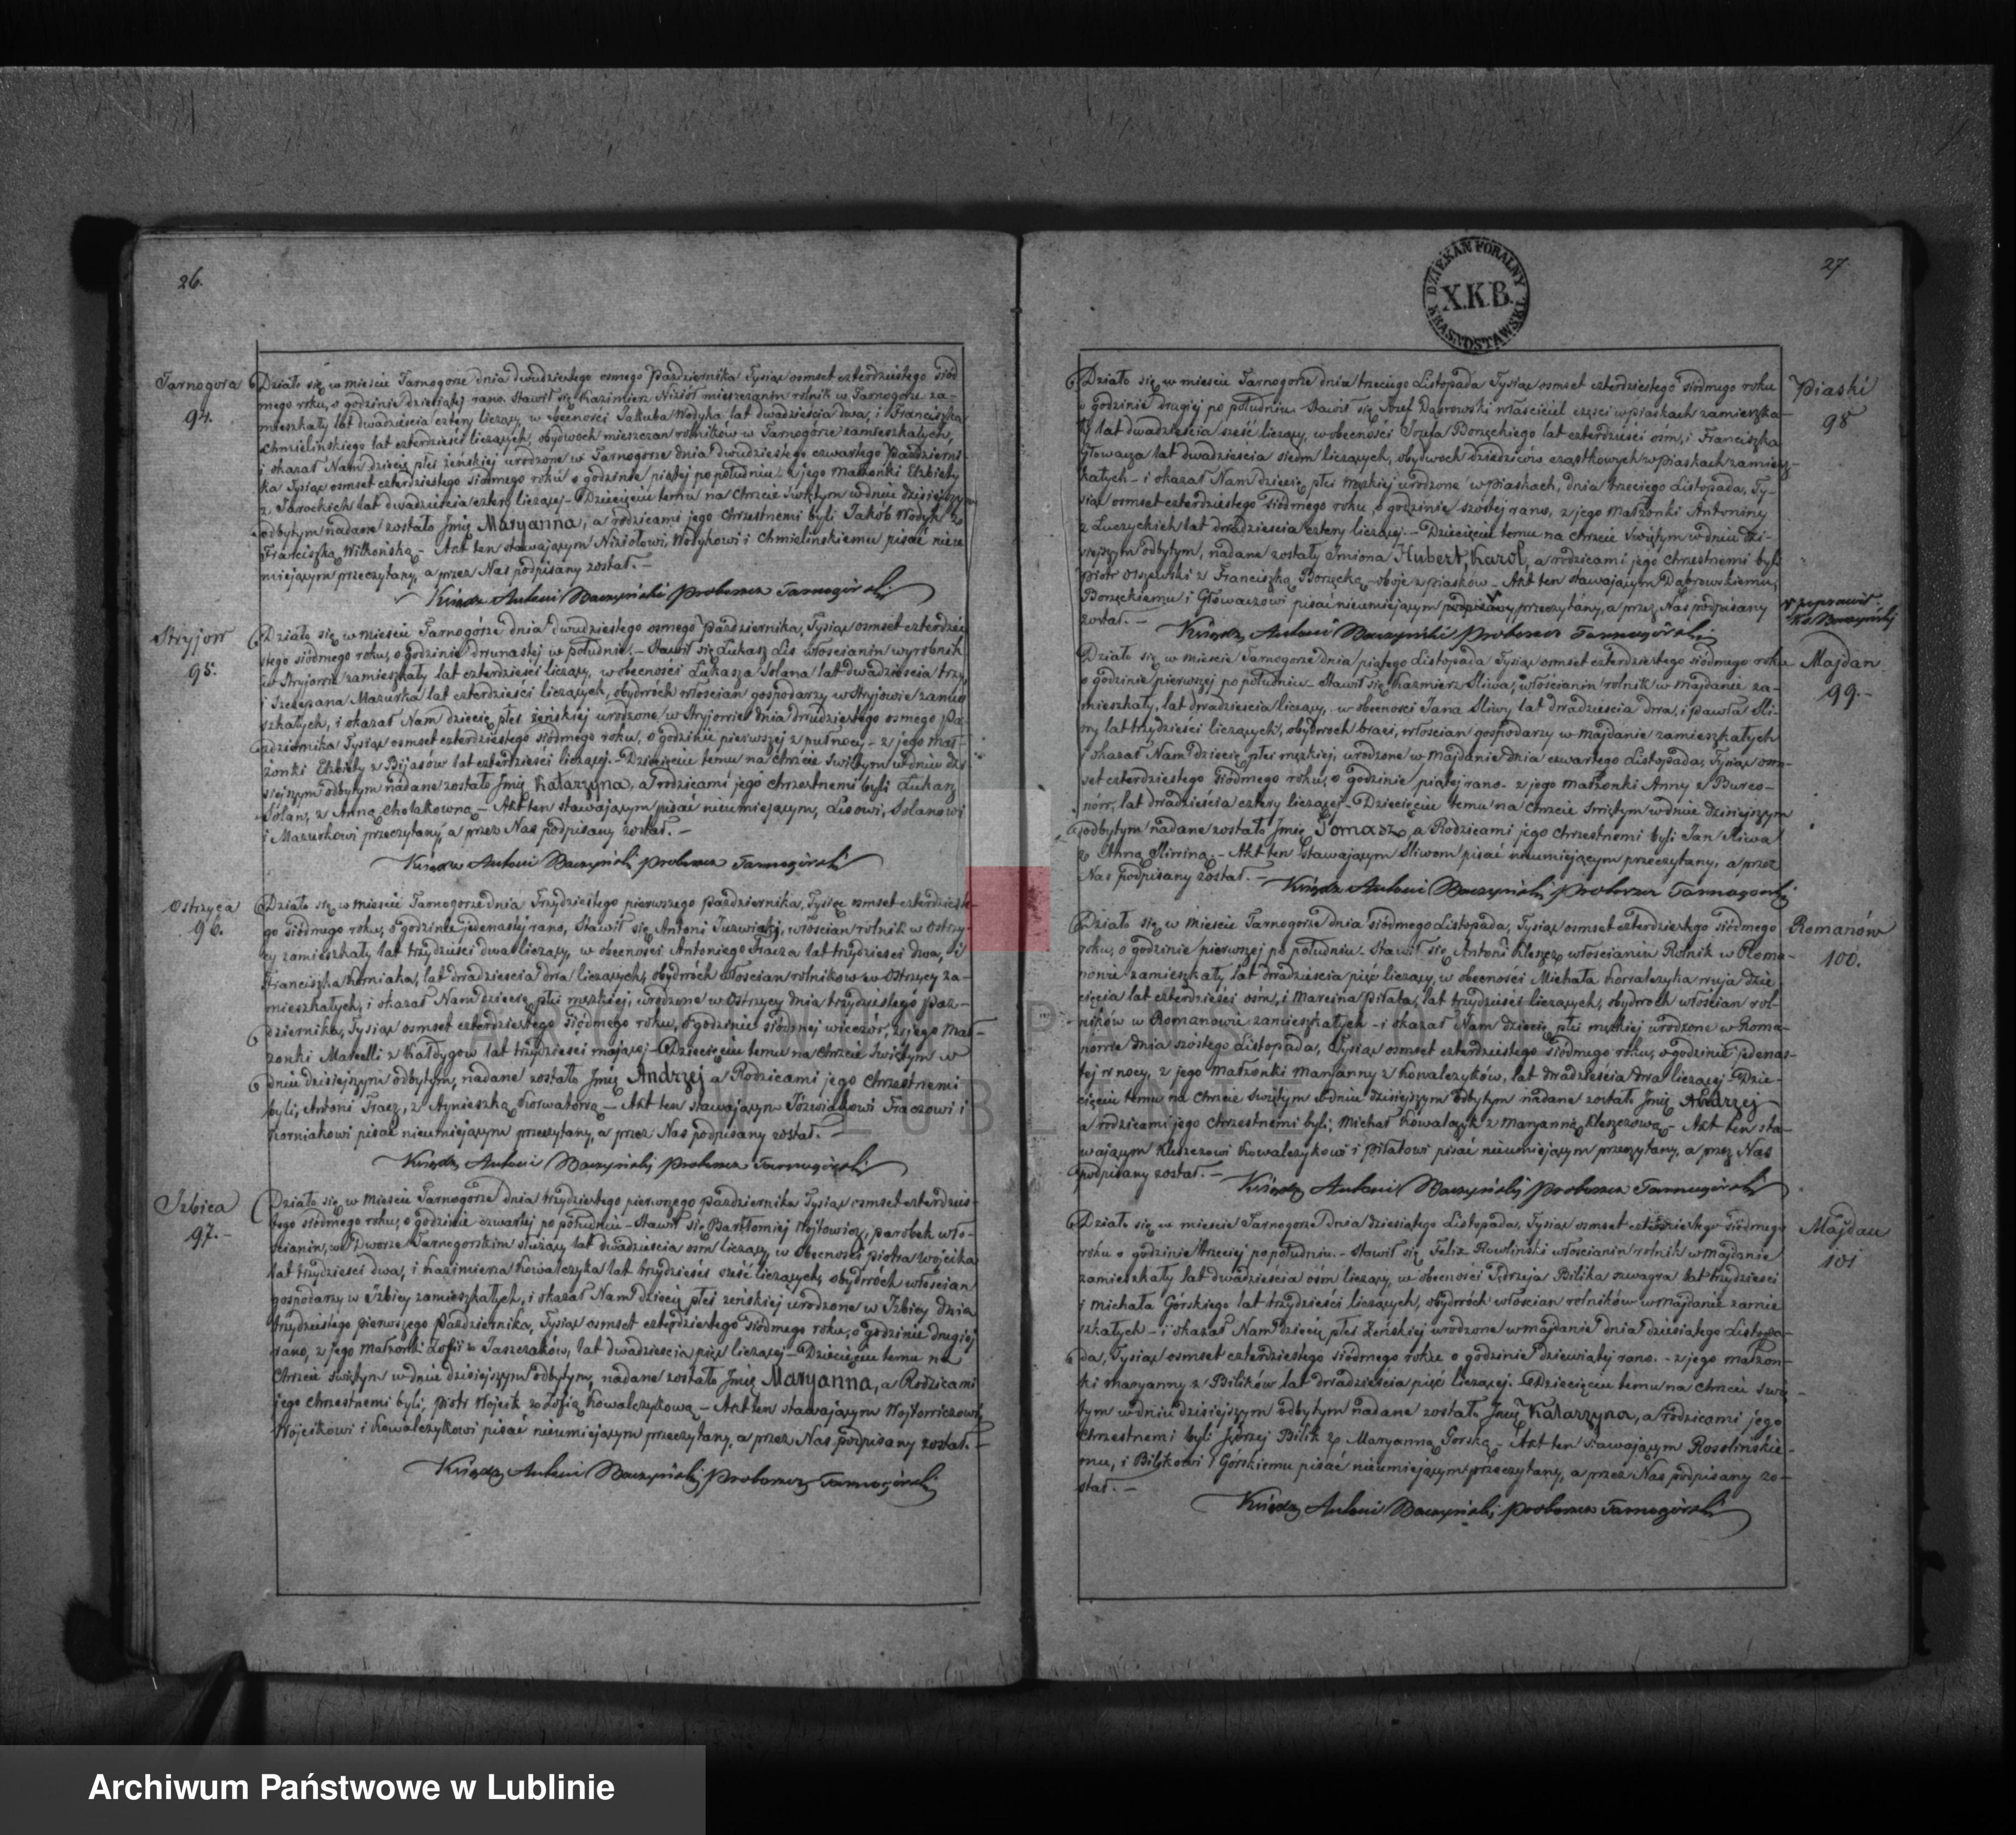 26.
Tarnogora
94.
Działo się w mieście Tarnogorze dnia dwudziestego osmego Października Tysiąc osmset czterdziestego siód
mego roku, o godzinie dziewiątej rano. Stawił się Kazimierz Nizioł mieszczanin rolnik w Tarnogorze za-
mieszkały lat dwadzieścia cztery liczący, w obecności Jakuba Wodyka lat dwadzieścia dwa, i Franciszka
Chmielinskiego lat czterdzieści liczących, obydwoch mieszczan rolników w Tarnogórze zamieszkałych,
i okazał Nam dziecię płci żeńskiej urodzone w Tarnogorze dnia dwudziestego czwartego Październi-
ka Tysiąc osmset czterdziestego siódmego roku o godzinie piątej po południu z jego małżonki Elżbiety
z Tarockich lat dwadzieścia cztery liczącej - Dziecięciu temu na Chrzcie świętym w dniu dzisiejszym
odbytym nadane zostało Imię Maryanna, a rodzicami jego Chrzestnemi byli Jakób Wodyk z
Franciszką Witkońską - Akt ten stawającym Niziołowi, Wodykowi i Chmielinskiemu pisać nieu
miejącym przeczytany, a przez Nas podpisany został. -
Ksiądz Antoni Baczyński Proboszcz Tarnogórski
Stryjow
95.
Działo się w mieście Tarnogórze dnia dwudziestego osmego Października, Tysiąc osmset czterdzie
stego siódmego roku, o godzinie dwunastej w południe. - Stawił się Łukasz Lis włościanin wyrobnik
w Stryjowie zamieszkały lat czterdzieści liczący, w obecności Łukasza Solana lat dwadzieścia trzy,
i Szczepana Mazurka lat czterdzieści liczących, obydwóch włościan gospodarzy w Stryjowie zamie
szkałych, i okazał Nam dziecię płci żeńskiej urodzone w Stryjowie dnia dwudziestego osmego Pa-
ździernika Tysiąc osmset czterdziestego siódmego roku, o godzinie pierwszej z północy - z jego mał-
żonki Elżbiety z Bijasów lat czterdzieści liczącej. - Dziecięciu temu na chrzcie świętym w dniu dzi
siejszym odbytym nadane zostało Imię Katarzyna, a rodzicami jego chrzestnemi byli Łukasz
Solan, z Anną Cholakowną - Akt ten stawającym pisać nieumiejącym, Lisowi, Solanowi
i Mazurkowi przeczytany, a przez Nas podpisany został. -
Ksiądz Antoni Baczyński Proboszcz Tarnogórski
Ostrzyca
96.
Działo się w mieście Tarnogorze dnia Trzydziestego pierwszego Października, Tysiąc osmset czterdzieste-
go siódmego roku, o godzinie jedenastej rano, Stawił się Antoni włościan rolnik w Ostrzy-
cy zamieszkały lat trzydzieści dwa liczący, w obecności Antoniego Fracza lat trzydzieści dwa, i
Franciszka Korniaka, lat dwadzieścia dwa liczących, obydwóch włościan rolników w Ostrzycy za-
mieszkałych, i okazał Nam dziecię płci męzkiej, urodzone w Ostrzycy dnia trzydziestego Paź-
dziernika, Tysiąc osmset czterdziestego siódmego roku, o godzinie siódmej wieczór, z jego mał-
żonki Marcelli z Kałdygow lat trzydzieści mającej - Dziecięciu temu na Chrzcie świętym w
dniu dzisiejszym odbytym, nadane zostało Imię Andrzej a Rodzicami jego Chrzestnemi
byli, Antoni Fracz, z Agnieszką - Akt ten stawającym Fraczowi i
Korniakowi pisać nieumiejącym przeczytany, a przez Nas podpisany został. -
Ksiądz Antoni Baczyński Proboszcz Tarnogórski
Izbica
97.-
Działo się w mieście Tarnogorze dnia trzydziestego pierwszego Października Tysiąc osmset czterdzies-
tego siódmego roku, o godzinie czwartej po południu - Stawił się Bartłomiej Wojtowicz, parobek wło-
ścianin, w Dworze Tarnogorskim służący lat dwadzieścia osm liczący w obecności Piotra Wojcika
lat trzydzieści dwa, i Kazimierza Kowalczyka lat trzydzieści sześć liczących, obydwóch włościan
gospodarzy w Izbicy zamieszkałych, i okazał Nam dziecię płci żeńskiej urodzone w Izbicy dnia
trzydziestego pierwszego Października, Tysiąc osmset czterdziestego siódmego roku, o godzinie drugiej
rano, z jego małżonki Zofii z Jaszczaków, lat dwadzieścia pięć liczącej - Dziecięciu temu na
Chrzcie świętym w dniu dzisiejszym odbytym, nadane zostało Imię Maryanna, a Rodzicami
jego chrzestnemi byli, Piotr Wojcik z Zofią Kowalczykową - Akt ten stawającym Wojtowiczowi
Wojcikowi i Kowalczykowi pisać nieumiejącym przeczytany, a przez Nas podpisany został. -
Ksiądz Antoni Baczyński Proboszcz Tarnogórski
27.
DZIEKAN FORALNY KRASNOSTAWSKI
X.K.B.
Piaski
98
Działo się w mieście Tarnogorze dnia trzeciego Listopada Tysiąc osmset czterdziestego siódmego roku
o godzinie drugiej po południu. Stawił się Józef Dąbrowski właściciel części w Piaskach zamieszka-
ły lat dwadzieścia sześć liczący, w obecności Józefa Borzęckiego lat czterdzieści osm, i Franciszka
Głowacza lat dwadzieścia siedm liczących, obydwoch dziedziców cząstkowych w Piaskach zamiesz-
kałych - i okazał Nam dziecię płci męzkiej urodzone w Piaskach, dnia trzeciego Listopada, Ty-
siąc osmset czterdziestego siódmego roku, o godzinie szóstej rano, z jego małżonki Antoniny
z Łuczyckich lat dwadzieścia cztery liczącej. - Dziecięciu temu na chrzcie Świętym w dniu dzi-
siejszym odbytym, nadane zostały Imiona Hubert, Karol, a rodzicami jego Chrzestnemi byli
Piotr Olszewski z Franciszką Borzęcką - oboje z Piasków - Akt ten stawającym Dąbrowskiemu,
Borzęckiemu i Głowaczowi pisać nieumiejącym przeczytany, a przez Nas podpisany
został. -
Ksiądz Antoni Baczyński Proboszcz Tarnogórski
Majdan
99.-
Działo się w mieście Tarnogorze dnia piątego Listopada Tysiąc osmset czterdziestego siódmego roku
o godzinie pierwszej po południu - Stawił się Kazimierz Sliwa, włościanin rolnik w Majdanie za-
mieszkały, lat dwadzieścia liczący, w obecności Jana Sliwy lat dwadzieścia dwa, i Pawła Sli-
wy lat trzydzieści liczących, obydwoch braci, włościan gospodarzy w Majdanie zamieszkałych
i okazał Nam dziecię płci męzkiej, urodzone w Majdanie dnia czwartego Listopada, Tysiąc osm-
set czterdziestego siódmego roku, o godzinie piątej rano - z jego małżonki Anny z Burco-
nów, lat dwadzieścia cztery liczącej - Dziecięciu temu na chrzcie świętym w dniu dzisiejszym
odbytym nadane zostało Imię Tomasz, a Rodzicami jego chrzestnemi byli Jan Sliwa
z Anną Sliwiną. - Akt ten stawającym Sliwom pisać nieumiejącym przeczytany, a przez
Nas podpisany został. -
Ksiądz Antoni Baczyński Proboszcz Tarnogorski
Romanów
100.
Działo się w mieście Tarnogorze dnia siódmego Listopada, Tysiąc osmset czterdziestego siódmego
roku, o godzinie pierwszej po południu - Stawił się Antoni Kleszcz włościanin Rolnik w Roma-
nowie zamieszkały lat dwadzieścia pięć liczący, w obecności Michała Kowalczyka wuja dzie-
cięcia lat czterdzieści osm, i Marcina Piłata, lat trzydzieści liczących, obydwoch włościan rol-
ników w Romanowie zamieszkałych - i okazał Nam dziecię płci męzkiej urodzone w Roma-
nowie dnia szóstego Listopada, Tysiąc osmset czterdziestego siódmego roku, o godzinie jedenas-
tej w nocy, z jego małżonki Maryanny z Kowalczyków, lat dwadzieścia dwa liczącej - Dzie-
cięciu temu na Chrzcie świętym w dniu dzisiejszym odbytym nadane zostało Imię Andrzej
a rodzicami jego chrzestnemi byli, Michał Kowalczyk z Maryanną Kleszczową - Akt ten sta-
wającym Kleszczowi Kowalczykowi i Piłatowi pisać nieumiejącym przeczytany, a przez Nas
podpisany został. -
Ksiądz Antoni Baczyński Proboszcz Tarnogórski
Majdan
101
Działo się w mieście Tarnogorze dnia dziesiątego Listopada, Tysiąc osmset czterdziestego siódmego
roku o godzinie trzeciej po południu. - Stawił się Felix włościanin rolnik w Majdanie
zamieszkały lat dwadzieścia ośm liczący, w obecności Jędrzeja Bilika szwagra lat trzydzieści
i Michała Górskiego lat trzydzieści liczących, obydwóch włościan rolników w Majdanie zamie
szkałych - i okazał Nam dziecię płci Żeńskiej urodzone w Majdanie dnia dziesiątego Listopa-
da, Tysiąc osmset czterdziestego siódmego roku o godzinie dziewiątej rano. - z jego małżon-
ki Maryanny z Bilików lat dwadzieścia pięć liczącej. - Dziecięciu temu na chrzcie świę-
tym w dniu dzisiejszym odbytym nadane zostało Imię Katarzyna, a rodzicami jego
Chrzestnemi byli Jędrzej Bilik z Maryanną Gorską - Akt ten stawającym Rosolińskie-
mu, i Bilikowi i Górskiemu pisać nieumiejącym przeczytany, a przez Nas podpisany zo-
stał. -
Ksiądz Antoni Baczyński Proboszcz Tarnogórski
ARCHIWUM PAŃSTWOWE
W LUBLINIE
Archiwum Państwowe w Lublinie